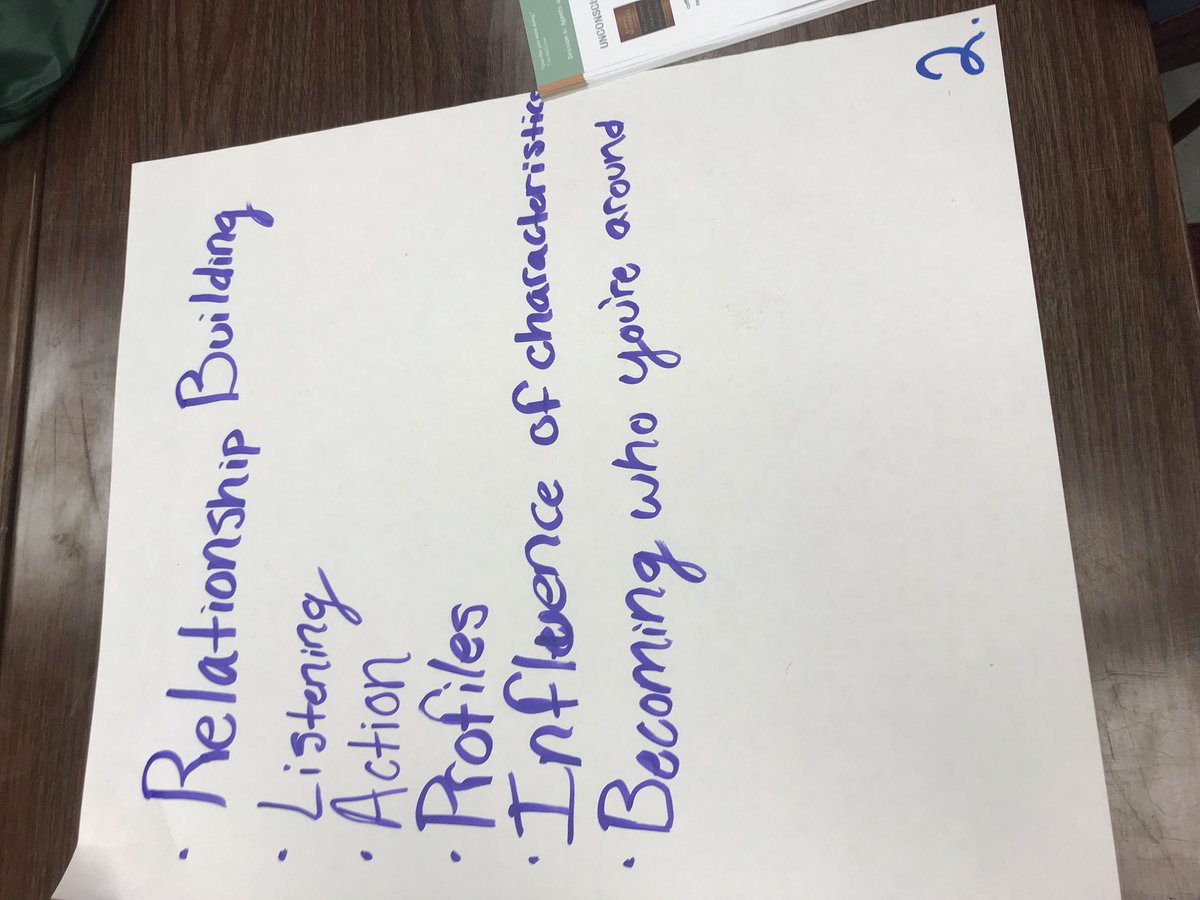 2.
• Relationship Building
• Listening
• Action
• Profiles
• Influence of characteristics
• Becoming who you're around